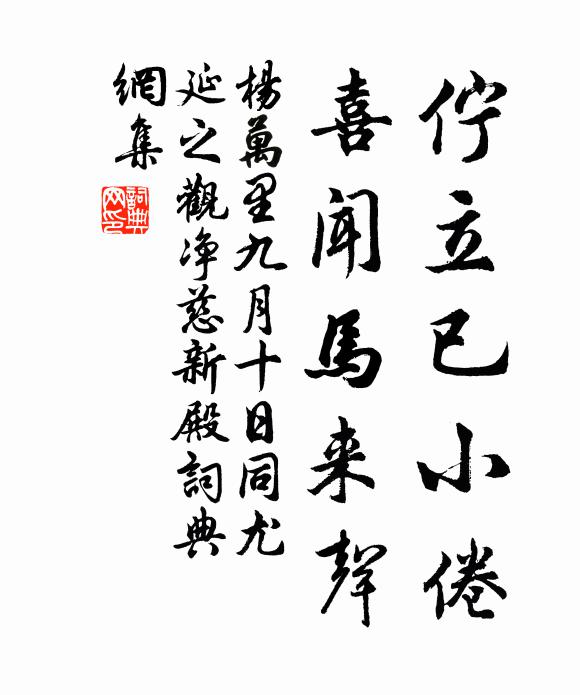 佇立已小倦
喜聞馬来聲
楊萬里九月十日同尤
延之觀净慈新殿詞典
網集
詞典
网印